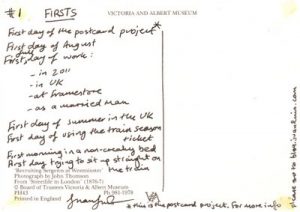 #1 FIRSTS
VICTORIA AND ALBERT MUSEUM
First day of the postcard project*
First day of August
First day of work:
- in 2011
- in UK
- at Framestore
- as a married man
First day of summer in the UK
First day of using the train season
ticket
First morning in a non-creaky bed
First day trying to sit up straight on
the train
'Recruiting Sergeants at Westminster'
Photograph by John Thomson
From 'Streetlife in London' (1876-7)
© Board of Trustees Victoria & Albert Museum
PH43 Ph.981-1978
Printed in England
* this is the postcard project. For more info
please go to blog.